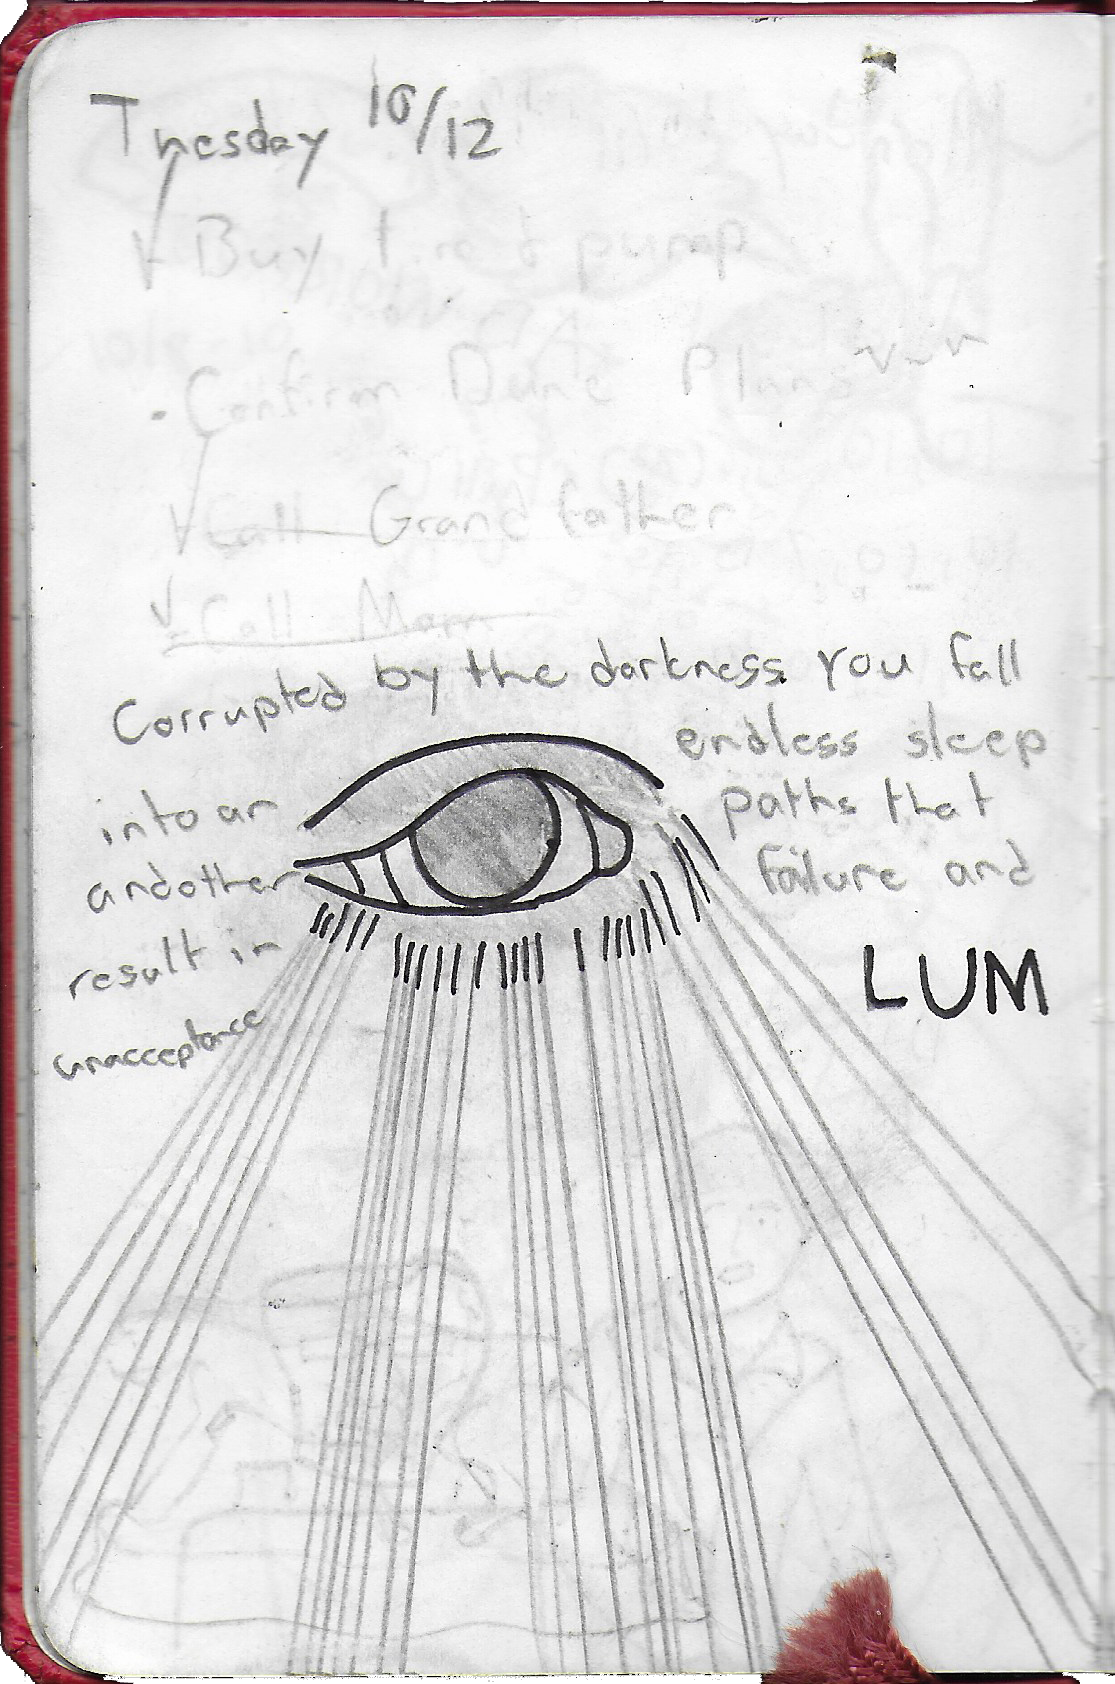 Tuesday 10/12
Buy 1 red pump
Confirm Dune Plans
Call Grandfather
Call Mom
Corrupted by the darkness you fall
into an endless sleep
and other paths that
result in failure and
unacceptance
LUM